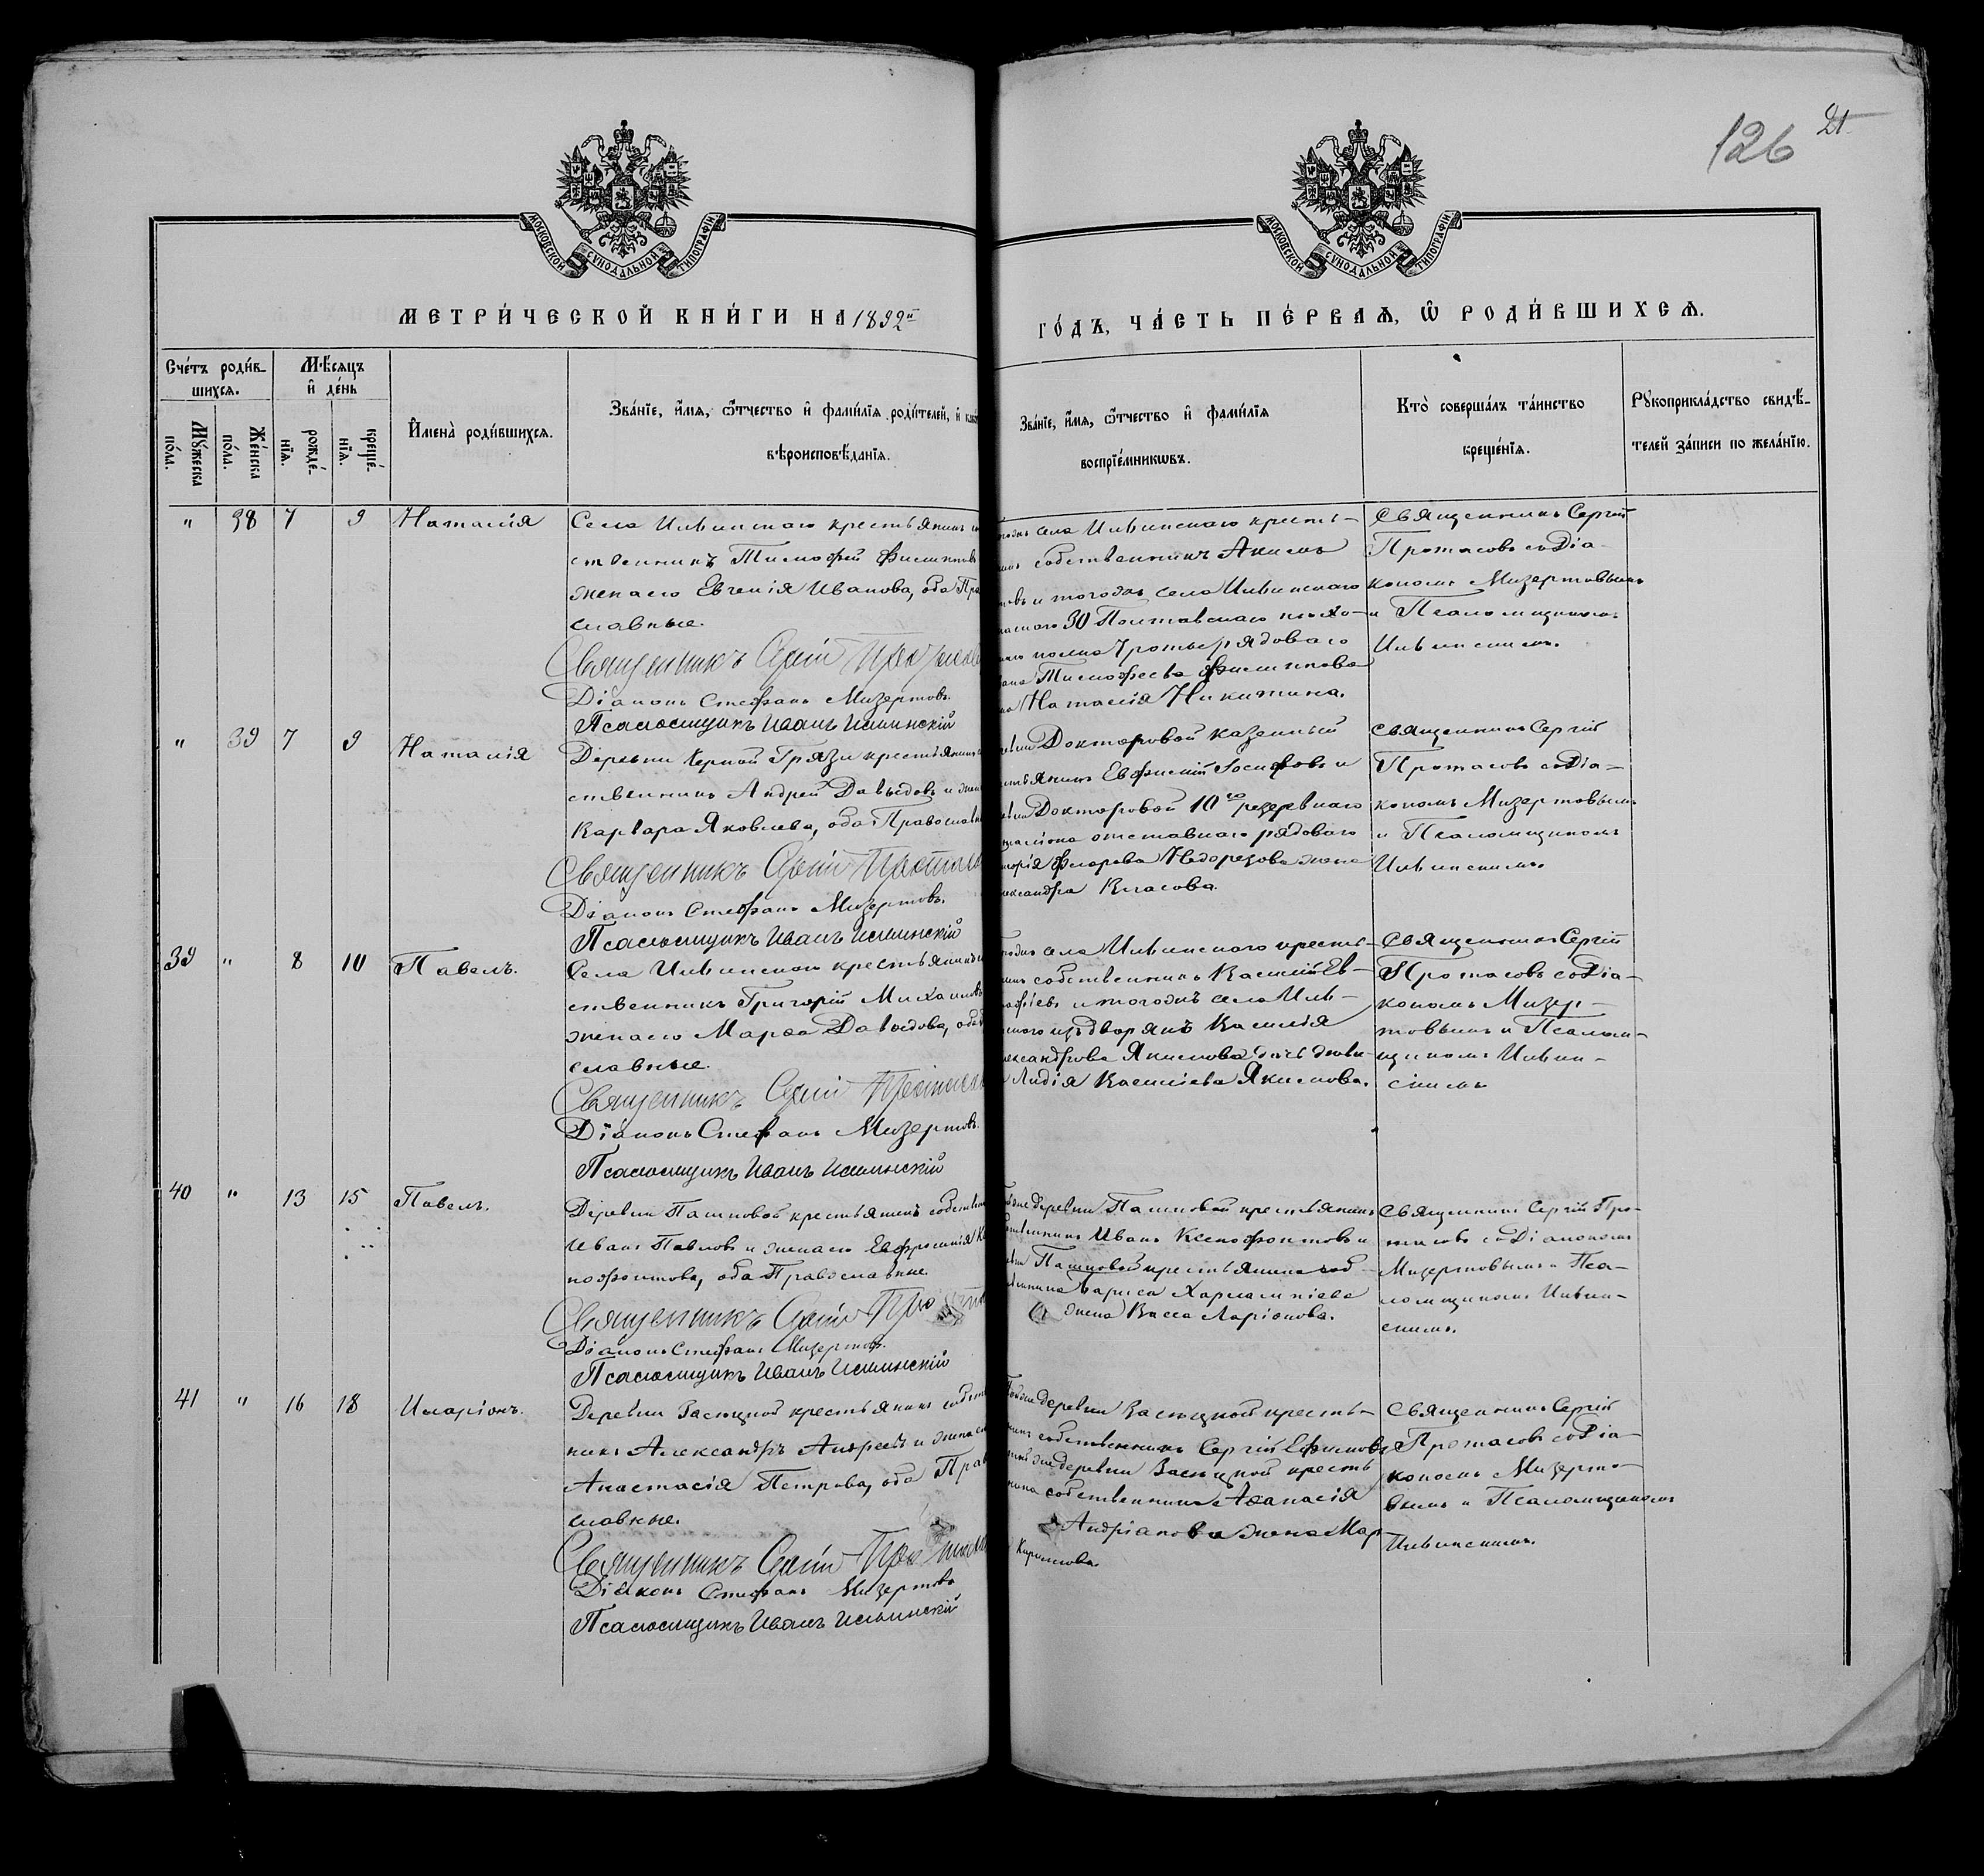 126 21
МОСКОВСКОЙ СУНОДАЛЬНОЙ ТИПОГРАФІИ
МОСКОВСКОЙ СУНОДАЛЬНОЙ ТИПОГРАФІИ
МЕТРИ́ЧЕСКОЙ КНИ́ГИ НА 1892й
ГО́ДЪ, ЧА́СТЬ ПЕ́РВАѦ, Ѡ҆ РОДИ́ВШИХСѦ.
Сче́тъ роди́в-
шихсѧ.
Мꙋ́жеска по́ла.
Же́нска по́ла.
Мѣ́сѧцъ
и҆ де́нь
рожде́-нїѧ.
креще́-нїѧ.
И҆мена̀ роди́вшихсѧ.
Зва́нїе, и҆́мѧ, ѻ҆́тчество и҆ фами́лїѧ роди́телей, и҆
вѣроисповѣ́данїѧ.
Зва́нїе, и҆́мѧ, ѻ҆́тчество и҆ фами́лїѧ
воспрїе́мникѡвъ.
Кто̀ соверша́лъ та́инство
креще́нїѧ.
Рꙋкоприкла́дство свидѣ́-
телей за́писи по жела́нїю.
" 38 7 9 Наталія
Села Ильинскаго крестьянинъ
ственникъ Тимофей Филипповъ
жена его Евгенія Иванова, оба Пра
славные.
Священникъ Сергій Протасовъ
Діаконъ Стефанъ Мизертовъ.
Псаломщикъ Иванъ Ильинскій
села Ильинскаго кресть-
собственникъ Акимъ
и тогожъ села Ильинскаго
30 Полтавскаго пѣхо-
полка рядоваго
Тимофеева Филиппова
Наталія Никитина.
Священникъ Сергій
Протасовъ съ Діа-
кономъ Мизертовымъ
и Псаломщикомъ
Ильинскимъ.
" 39 7 9 Наталія
Деревни Черной Грязи крестьянинъ
ственникъ Андрей Давыдовъ и
Варвара Яковлева, оба Православн
Священникъ Сергій Протасовъ
Діаконъ Стефанъ Мизертовъ.
Псаломщикъ Иванъ Ильинскій
Докторовой казенный
Евфимій Іосифовъ и
Докторовой 10го резервнаго
отставнаго рядоваго
Флорова Недорезова жена
Власова.
Священникъ Сергій
Протасовъ съ Діа-
кономъ Мизертовымъ
и Псаломщикомъ
Ильинскимъ.
39 " 8 10 Павелъ.
Села Ильинскаго крестьянинъ
ственникъ Григорій Михаиловъ
жена его Марѳа Давыдова, оба
славные.
Священникъ Сергій Протасовъ
Діаконъ Стефанъ Мизертовъ.
Псаломщикъ Иванъ Ильинскій
села Ильинскаго кресть-
собственникъ Василій Ев-
и тогожъ села Иль-
изъ дворянъ Василія
Якимова дочь
Лидія Васильева Якимова.
Священникъ Сергій
Протасовъ съ Діа-
кономъ Мизер-
товымъ и Псалом-
щикомъ Ильин-
скимъ
40 " 13 15 Павелъ.
Деревни Пашковой крестьянинъ собствен
Иванъ Павловъ и жена его Евфросинія К
нофонтова, оба Православные.
Священникъ Сергій Про
Діаконъ Стефанъ Мизертовъ.
Псаломщикъ Иванъ Ильинскій
деревни Пашковой крестьянинъ
Иванъ Ксенофонтовъ и
Пашковой крестьянина соб-
Бориса Харлампіева
жена Васса Ларіонова.
Священникъ Сергій Про-
тасовъ съ Діакономъ
Мизертовымъ и Пса-
ломщикомъ Ильин-
скимъ.
41 " 16 18 Иларіонъ.
Деревни Засецкой крестьянинъ собств
никъ Александръ Андреевъ и жена его
Анастасія Петрова, оба Прав
славные.
Священникъ Сергій Протасовъ
Діаконъ Стефанъ Мизертовъ
Псаломщикъ Иванъ Ильинскій
деревни Засецкой кресть-
собственникъ Сергій Ефимовъ
деревни Засецкой кресть
собственника Аѳанасія
Андріанова жена Мар
Кириллова.
Священникъ Сергій
Протасовъ съ Діа-
кономъ Мизерто-
вымъ и Псаломщикомъ
Ильинскимъ.